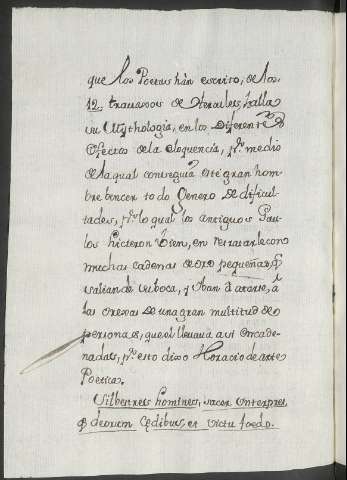 que los Poetas hàn escrito, de los
12. trauajos de Hercules, halla
su Mythologia, en los diferentes
efectos de la eloquencia, p.r medio
de la qual conseguia este gran hom
bre bencer todo genero de dificul
tades, p.r lo qual los antiguos Gau
los hicieron bien, en retratarle con
muchas cadenas de oro pequeñas, q̃
salian de su boca, y iban d atarse, à
las orejas de una gran multitud de
personas, que el lleuaua asi encade
nadas, p.r esto dixo Horacio de arte
Poetica.
Silbestreis homines, sacer interpres,
q̃ deorum Cędibus, et victu foedo.